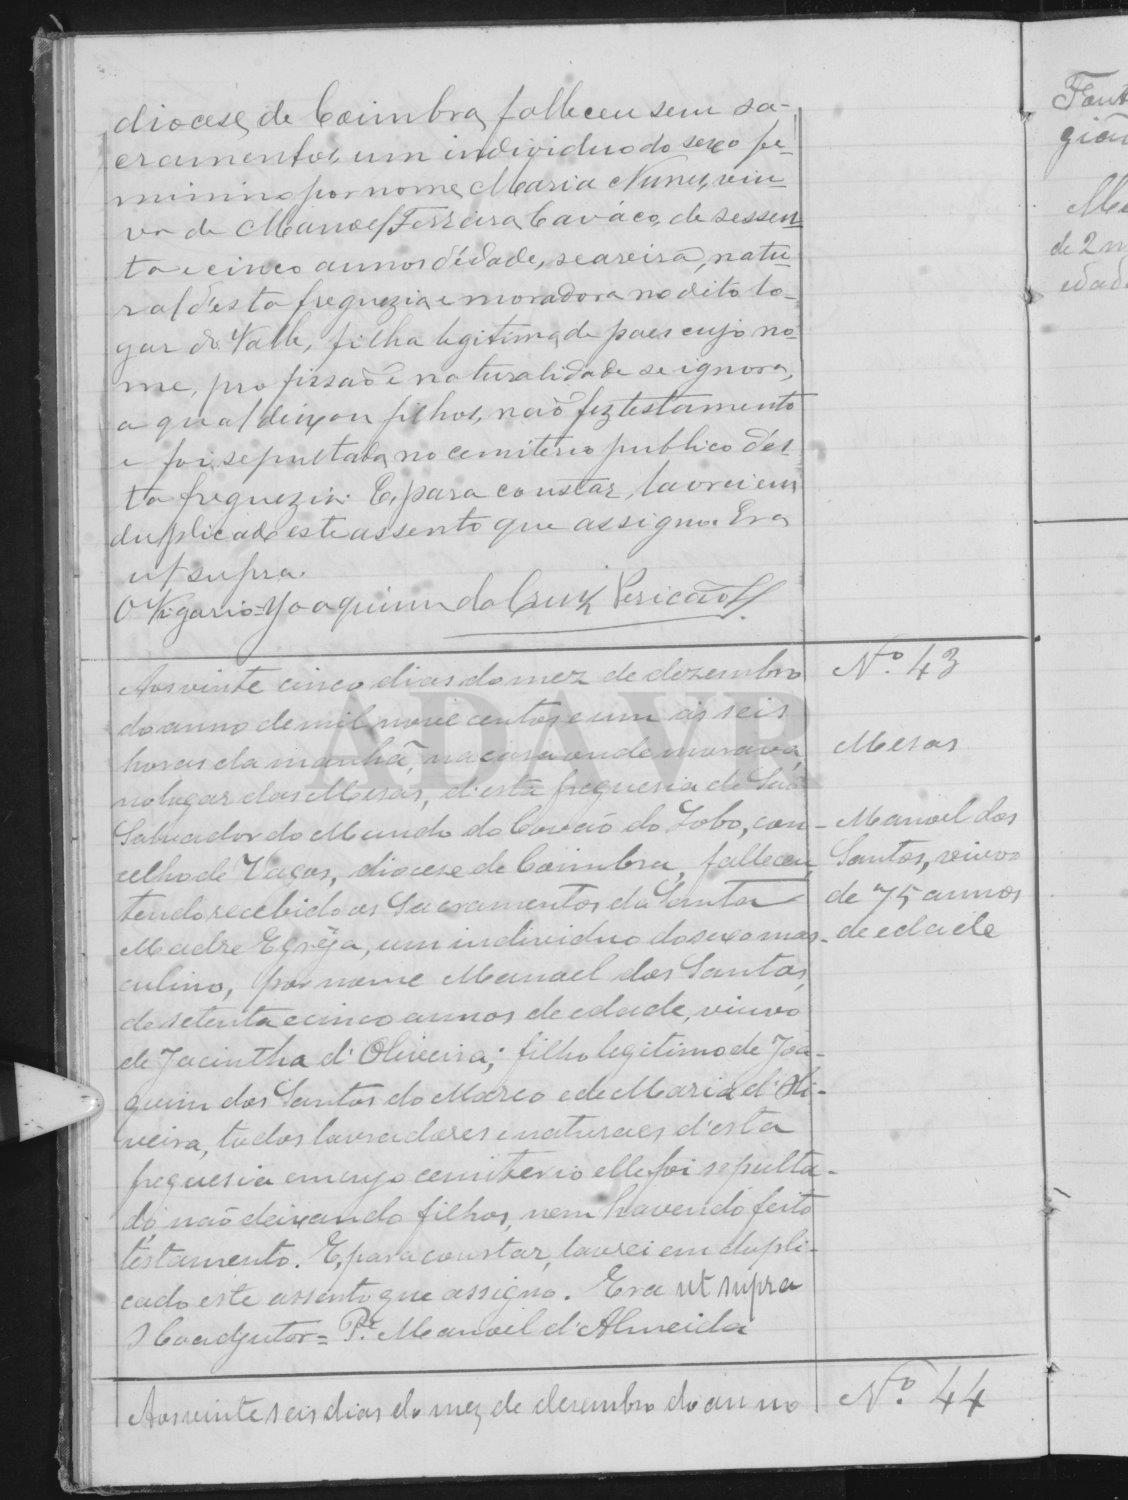 diocese de Coimbra, falleceu sem sa-
cramentos, um individuo do sexo fe-
minino por nome Maria Nunes, viu-
va de Manoel Ferreira Caváco, de sessen-
ta e cinco annos d'edade, seareira, natu-
ral d'esta freguezia e moradora no dito lo-
gar do Valle, filha legitima de paes cujo no-
me, profissaõ e naturalidade se ignora,
a qual deixou filhos, naõ fez testamento
e foi sepultada no cemiterio publico d'es-
ta freguezia. E, para constar, lavrei em
duplicado este assento que assigno. Era
ut supra.
O Vigario = Joaquim da Cruz Pericaõ
Aos vinte cinco dias do mez de dezembro
do anno de mil nove centos e um ás seis
horas da manhã, na casa onde morava,
no lugar das Mesas, d'esta freguesia de São
Salvador do Mundo do Covaõ do Lobo, con-
celho de Vagos, diocese de Coimbra, falleceu
tendo recebido os Sacramentos da Santa
Madre Egreja, um individuo do sexo mas-
culino, por nome Manoel dos Santos,
de setenta e cinco annos de edade, viuvo
de Jacintha d'Oliveira; filho legitimo de Joa-
quim dos Santos do Marco e de Maria d'Oli-
veira, todos lavradores e naturaes d'esta
freguesia em cujo cemiterio elle foi sepulta-
do, naõ deixando filhos, nem havendo feito
testamento. E, para constar, lavrei em dupli-
cado este assento que assigno. Era ut supra
O Coadjutor = P.e Manoel d'Almeida
Nº. 43
Mesas
Manoel dos
Santos, viuvo
de 75 annos
de edade
Aos vinte seis dias do mez de desembro do anno
Nº. 44
ADAVR